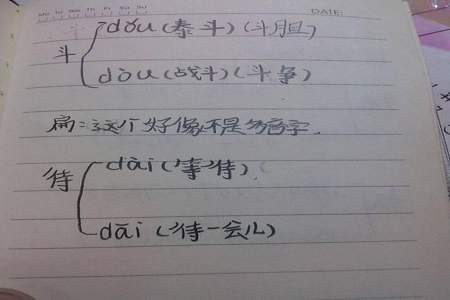 DATE:
斗
dǒu(泰斗)(斗胆)
dòu(战斗)(斗争)
扁:这个好像不是多音字.
待
dài(等待)
dāi(待一会儿)